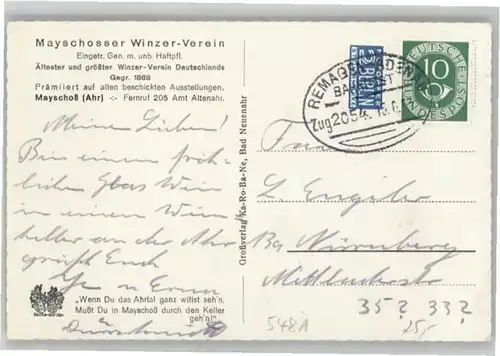 Mayschosser Winzer-Verein
Eingetr. Gen. m. unb. Haftpfl.
Ältester und größter Winzer-Verein Deutschlands
Gegr. 1868
Prämiiert auf allen beschickten Ausstellungen.
Mayschoß (Ahr) -:- Fernruf 205 Amt Altenahr.
Meine Lieben!
Bei einem fröh-
lichen Glas Wein
in einem Wein
keller an der Ahr
grüßt Euch
"Wenn Du das Ahrtal ganz willst seh'n,
Mußt Du in Mayschoß durch den Keller
geh'n!"
Großverlag Ka-Ro-Ba-Ne, Bad Neuenahr
BERLIN
BAHNPOST
Zug 2054
DEUTSCHE
BUNDESPOST
10
L. Engiler
Nürnberg
35? 33?
548A
25,-